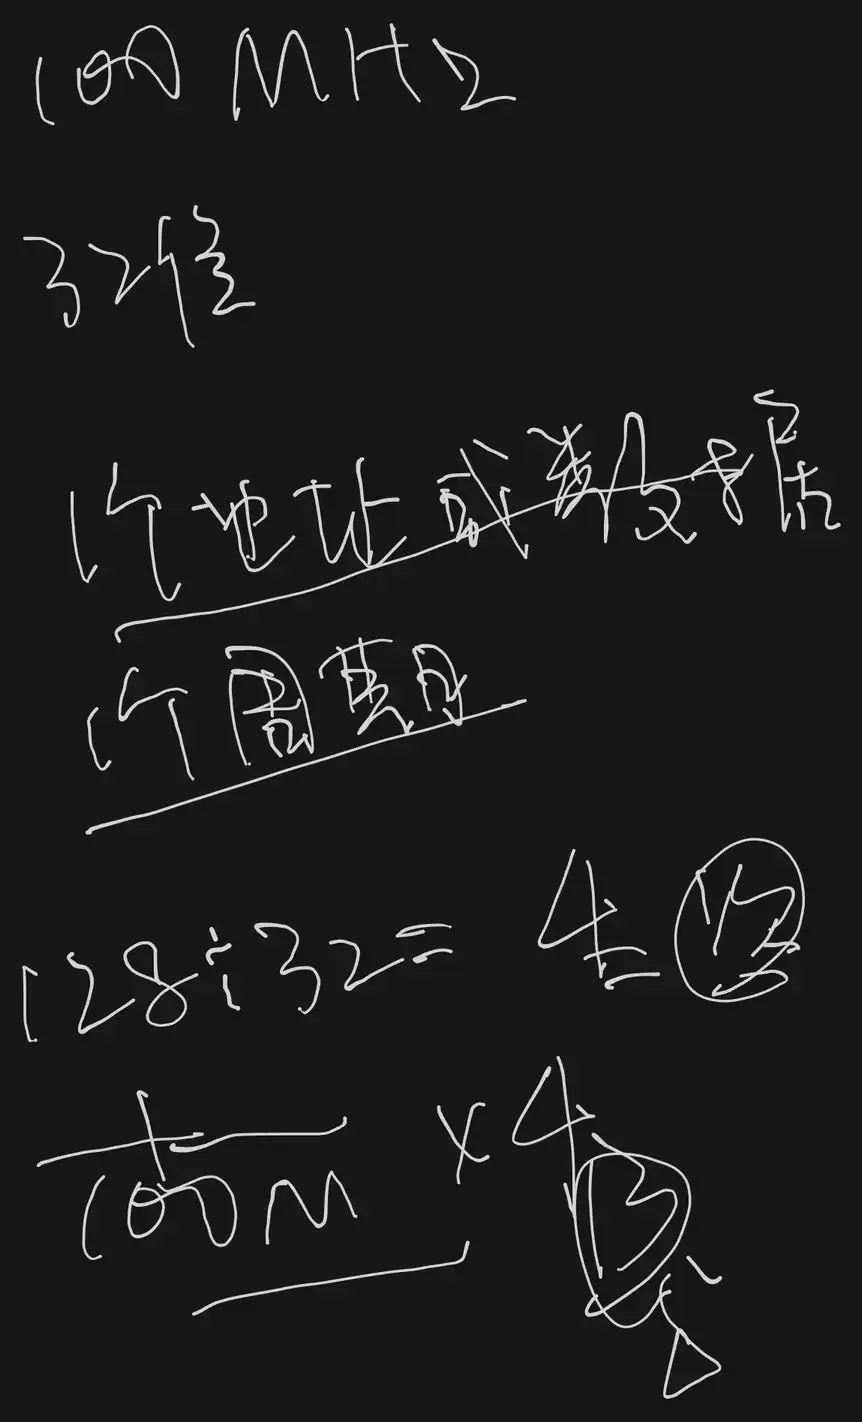 100 MHz
32位
1个地址或数据
1个周期
128÷32= 4
1/100M ×4